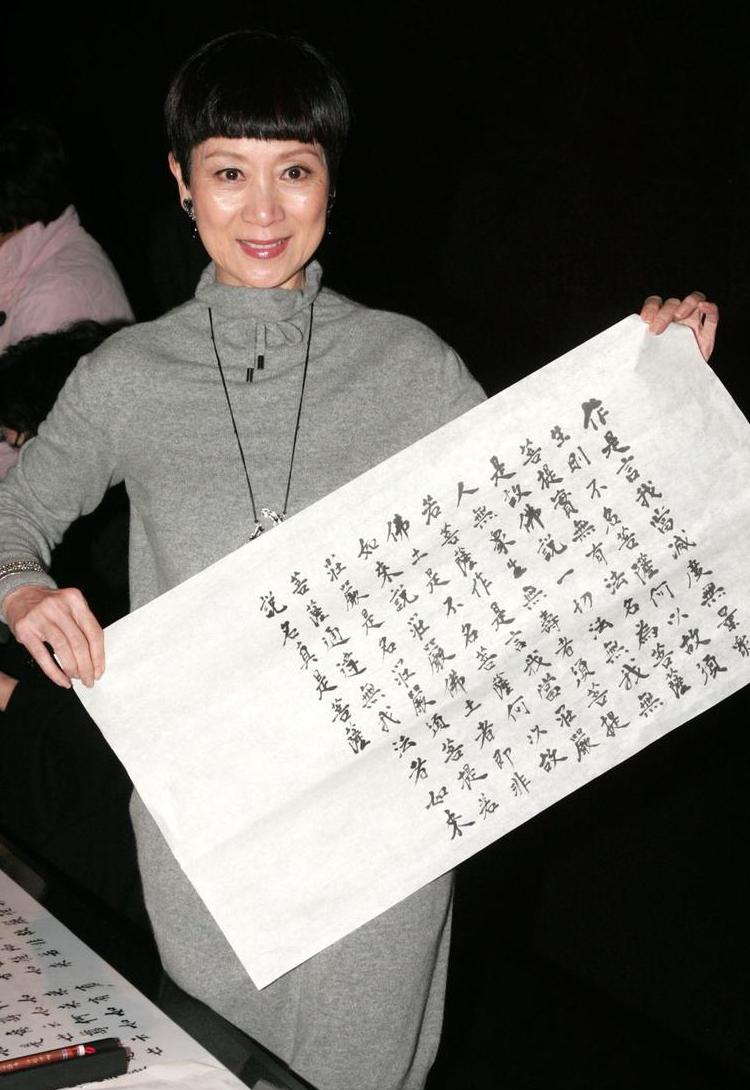 作是言我當滅度無量眾
生則不名菩薩何以故須
菩提實無有法名為菩薩
是故佛說一切法無我無
人無眾生無壽者須菩提
若菩薩作是言我當莊嚴
佛土是不名菩薩何以故
如來說莊嚴佛土者即非
莊嚴是名莊嚴須菩提若
菩薩通達無我法者如來
說名真是菩薩